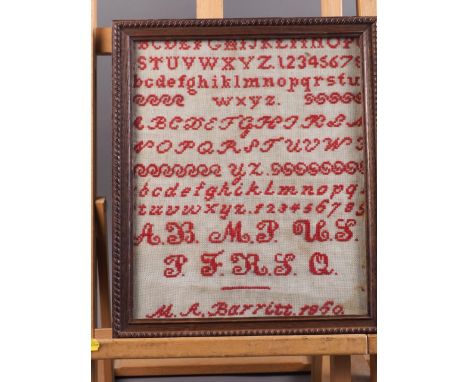 BCDEFGHIJKLMNOP
STUVWXYZ.12345678
bcdefghiklmnopqrstu
wxyz.
ABCDEFGHIKL
NOPQRSTUVW
YZ.
bcdefghiklmnopq
tuvwxyz.12345678
A.B. M.P. U.S.
P F.R.S. Q.
M. A. Barritt. 1850.